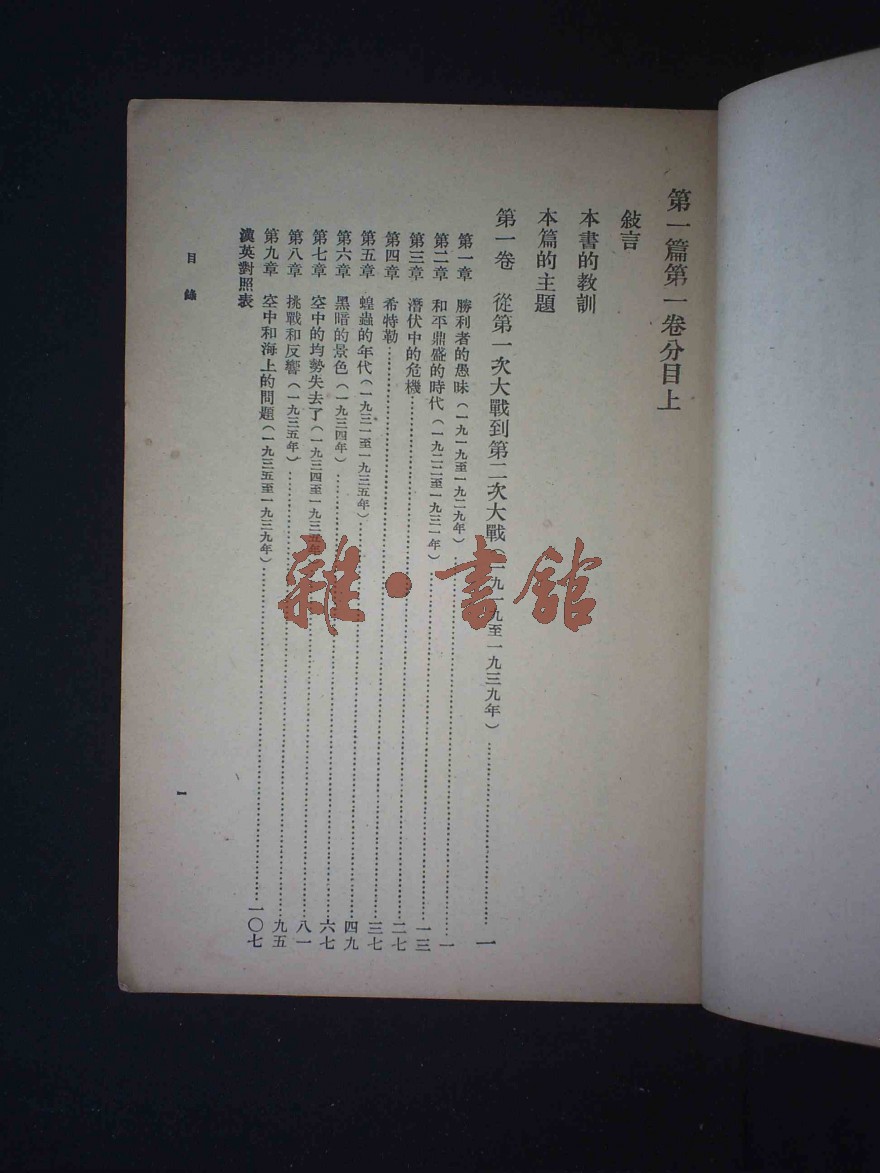 第一篇第一卷分目上
敍言
本書的教訓
本篇的主題
第一卷 從第一次大戰到第二次大戰（一九一九至一九三九年）……一
第一章 勝利者的愚昧（一九一九至一九二九年）……一
第二章 和平鼎盛的時代（一九二二至一九三一年）……一三
第三章 潛伏中的危機……二七
第四章 希特勒……三七
第五章 蝗蟲的年代（一九三一至一九三五年）……四九
第六章 黑暗的景色（一九三四年）……六七
第七章 空中的均勢失去了（一九三四至一九三五年）……八一
第八章 挑戰和反響（一九三五年）……九五
第九章 空中和海上的問題（一九三五至一九三九年）……一〇七
漢英對照表
目錄
一
雜·書館